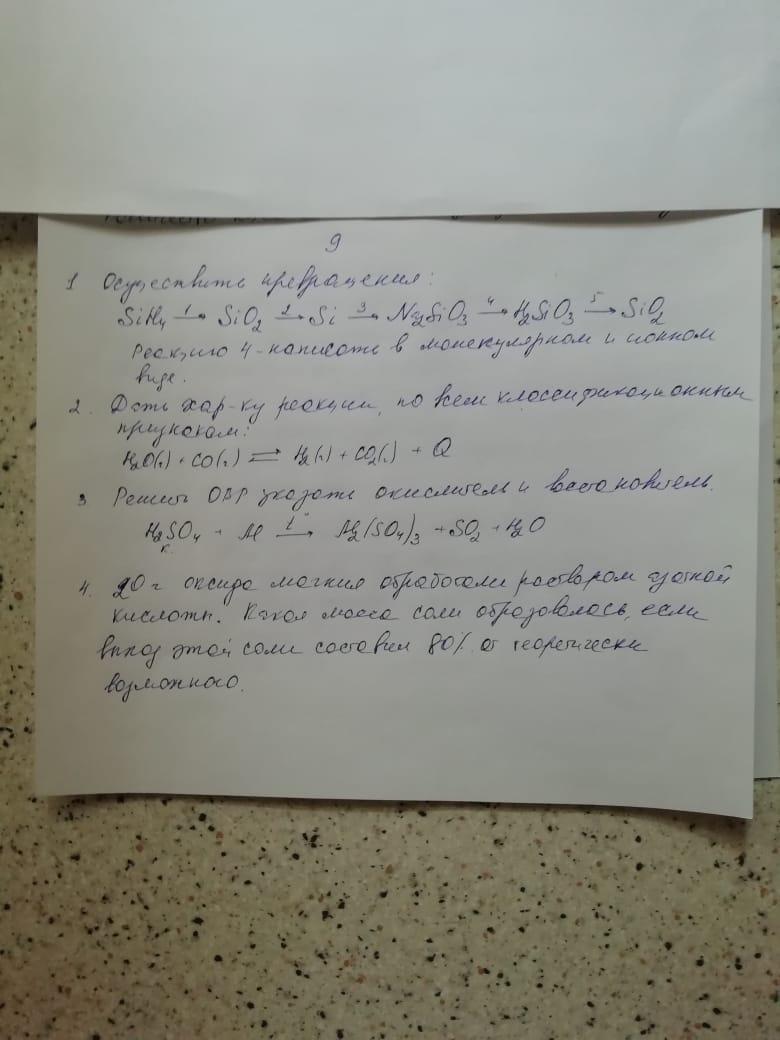 9
1 Осуществить превращения:
SiH4 1→ SiO2 2→ Si 3→ Na2SiO3 4→ H2SiO3 5→ SiO2
Реакцию 4 - написать в молекулярном и ионном
виде.
2. Дать хар-ку реакции, по всем классификационным
признакам:
H2O(г) + CO(г) ⇌ H2(г) + CO2(г) + Q
3 Решить ОВР указать окислитель и востановитель.
H2SO4 к. + Al → Al2(SO4)3 + SO2 + H2O
4. 20 г оксида магния обработали раствором азотной
кислоты. Какая масса соли образовалась, если
выход этой соли составил 80% от теоретически
возможного.